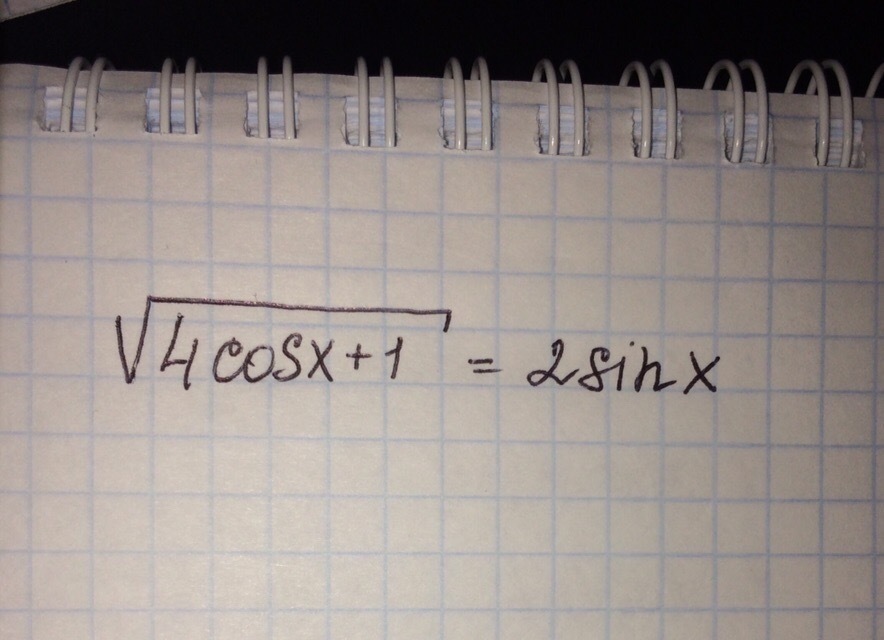 √4cosx+1 = 2sinx